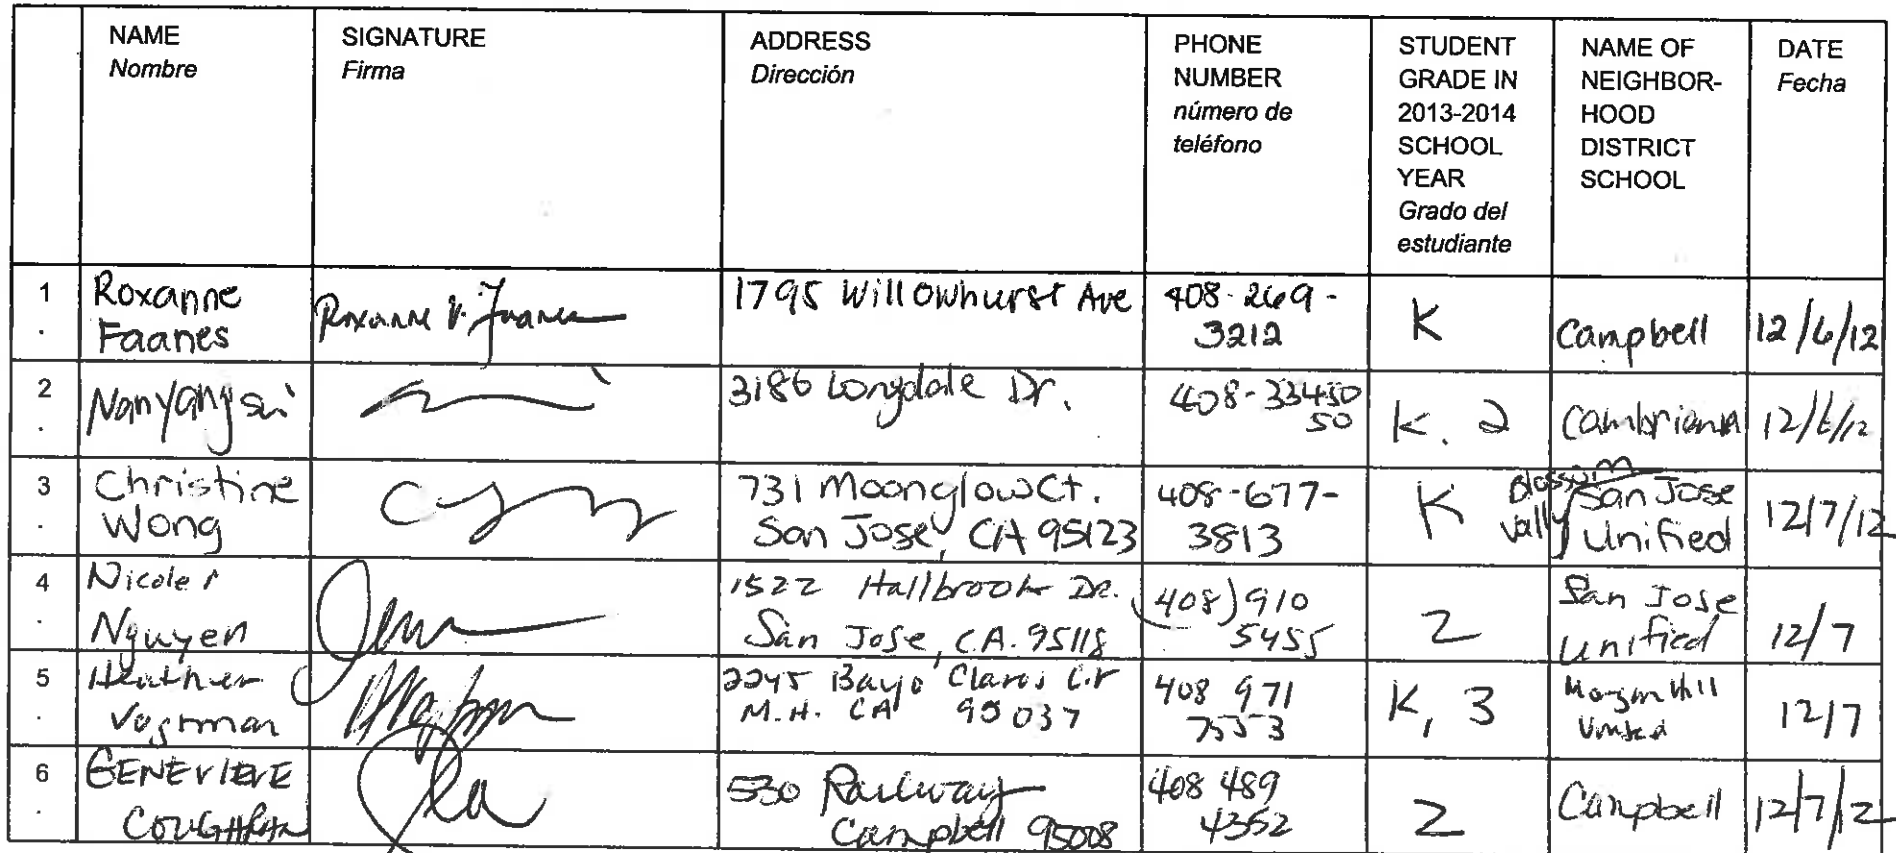 NAME
Nombre
SIGNATURE
Firma
ADDRESS
Dirección
PHONE
NUMBER
número de
teléfono
STUDENT
GRADE IN
2013-2014
SCHOOL
YEAR
Grado del
estudiante
NAME OF
NEIGHBOR-
HOOD
DISTRICT
SCHOOL
DATE
Fecha
1.
Roxanne
Faanes
Roxanne V. Faanes
1795 Willowhurst Ave
408-269-
3212
K
Campbell
12/6/12
2.
Nanyang
3186 Longdale Dr.
K. 2
12/6/12
3.
Christine
Wong
731 Moonglow Ct.
San Jose, CA 95123
408-677-
3813
K
Blossom
Vally
San Jose
Unified
12/7/12
4.
Nicole
Nguyen
1522 Hallbrook Dr.
San Jose, CA. 95118
408) 910
5455
2
San Jose
Unified
12/7
5.
2245 Claros Cir
M.H. CA 95037
408 971
7553
K, 3
Morgan Hill
12/7
6.
GENEVIEVE
530 Railway
Campbell 95008
408 489
4352
2
Campbell
12/7/12